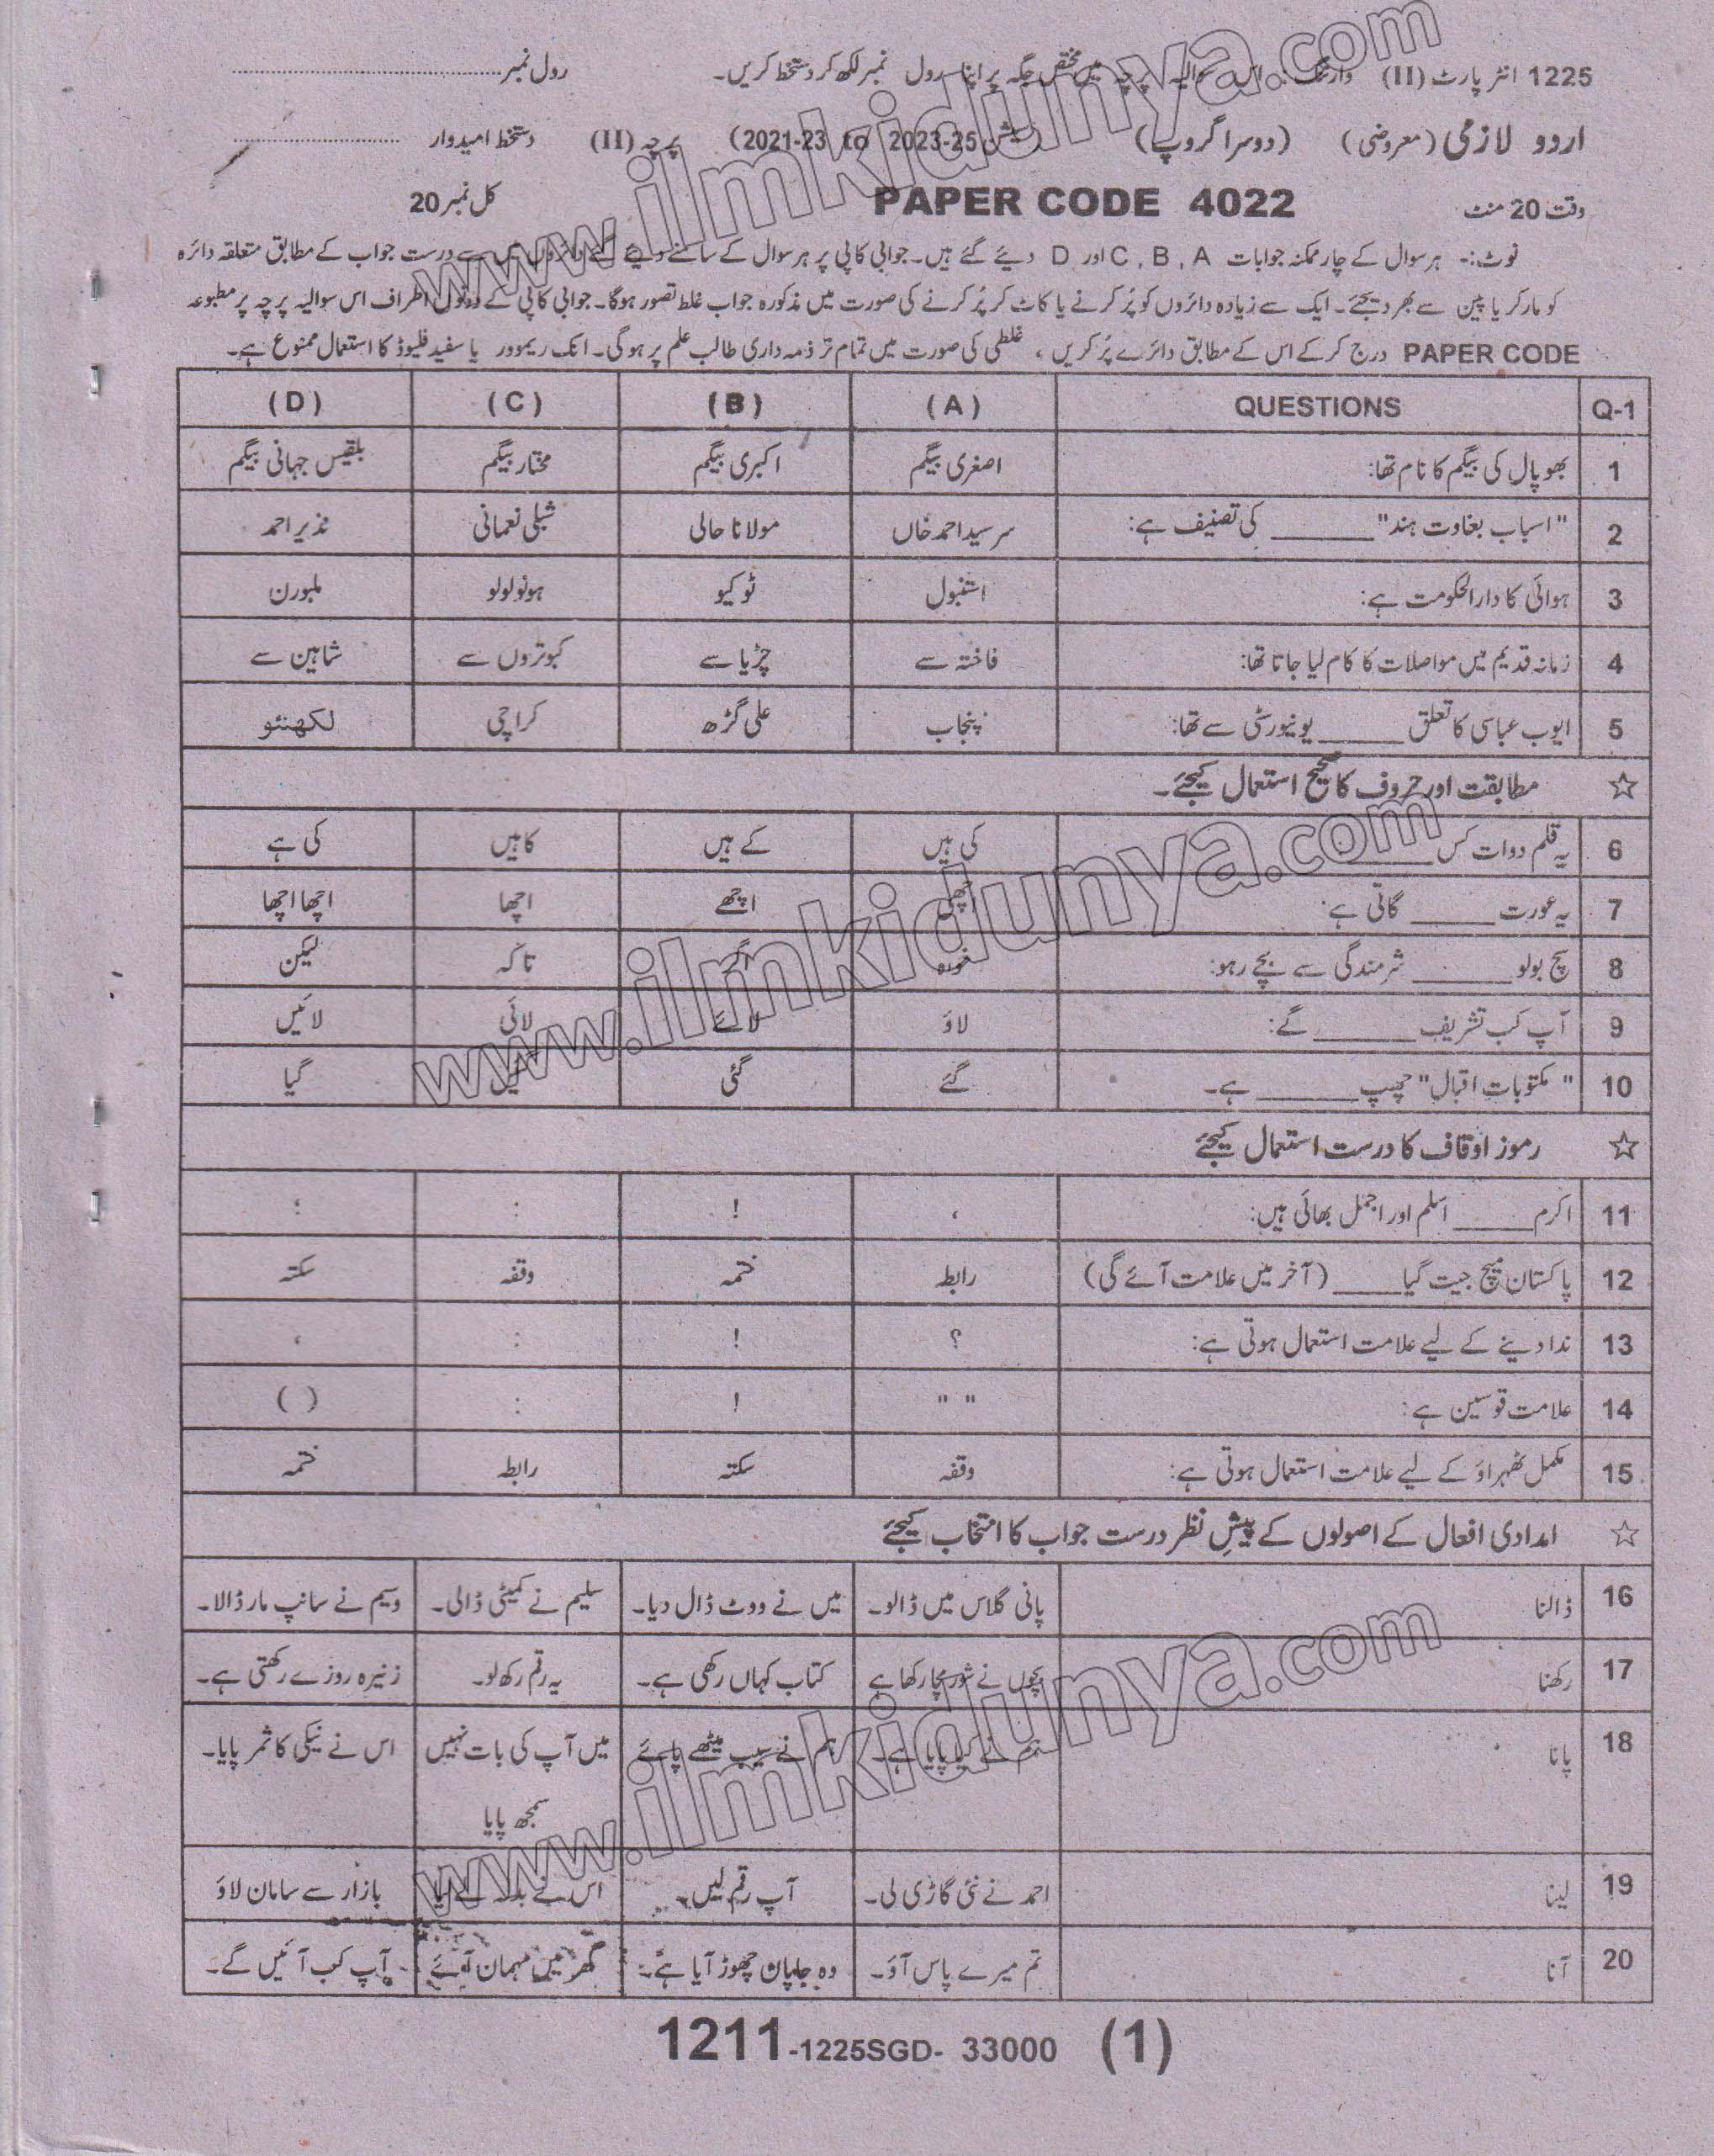 1225 انٹر پارٹ (II) وارننگ: اس سوالیہ پرچہ میں مختص جگہ پر اپنا رول نمبر لکھ کر دستخط کریں۔ رول نمبر
اردو لازمی (معروضی) (دوسرا گروپ) (سیشن 2021-23 to 2023-25) پرچہ (II) دستخط امیدوار
وقت 20 منٹ PAPER CODE 4022 کل نمبر 20
نوٹ:- ہر سوال کے چار ممکنہ جوابات A ، B ، C اور D دیئے گئے ہیں۔ جوابی کاپی پر ہر سوال کے سامنے دیئے گئے دائروں میں سے درست جواب کے مطابق متعلقہ دائرہ
کو مارکر یا پین سے بھر دیجئے۔ ایک سے زیادہ دائروں کو پُر کرنے یا کاٹ کر پُر کرنے کی صورت میں مذکورہ جواب غلط تصور ہوگا۔ جوابی کاپی کے دونوں اطراف اس سوالیہ پرچہ پر مطبوعہ
PAPER CODE درج کر کے اس کے مطابق دائرے پُر کریں ، غلطی کی صورت میں تمام تر ذمہ داری طالب علم پر ہوگی۔ انک ریموور یا سفید فلیوڈ کا استعمال ممنوع ہے۔
Q-1 QUESTIONS (A) (B) (C) (D)
1 بھوپال کی بیگم کا نام تھا: اصغری بیگم اکبری بیگم مختار بیگم بلقیس جہانی بیگم
2 "اسباب بغاوت ہند" ______ کی تصنیف ہے: سرسید احمد خاں مولانا حالی شبلی نعمانی نذیر احمد
3 ہوائی کا دارالحکومت ہے: استنبول ٹوکیو ہونولولو ملبورن
4 زمانہ قدیم میں مواصلات کا کام لیا جاتا تھا: فاختہ سے چڑیا سے کبوتروں سے شاہین سے
5 ایوب عباسی کا تعلق ______ یونیورسٹی سے تھا: پنجاب علی گڑھ کراچی لکھنئو
☆ مطابقت اور حروف کا صحیح استعمال کیجئے۔
6 یہ قلم دوات کس ______ کی ہیں کے ہیں کا ہیں کی ہے
7 یہ عورت ______ گاتی ہے: اچھی اچھے اچھا اچھا اچھا
8 سچ بولو ______ شرمندگی سے بچے رہو: ورنہ تاکہ لیکن
9 آپ کب تشریف ______ گے: لاؤ لائے لائی لائیں
10 "مکتوباتِ اقبال" چھپ ______ ہے۔ گئے گئی گیا
☆ رموز اوقاف کا درست استعمال کیجئے
11 اکرم ______ اسلم اور اجمل بھائی ہیں: ، ! : ؛
12 پاکستان میچ جیت گیا ____ (آخر میں علامت آئے گی) رابطہ ختمہ وقفہ سکتہ
13 ندا دینے کے لیے علامت استعمال ہوتی ہے: ؟ ! : ،
14 علامت قوسین ہے: " " ! : ( )
15 مکمل ٹھہراؤ کے لیے علامت استعمال ہوتی ہے: وقفہ سکتہ رابطہ ختمہ
☆ امدادی افعال کے اصولوں کے پیشِ نظر درست جواب کا انتخاب کیجئے
16 ڈالنا پانی گلاس میں ڈالو۔ میں نے ووٹ ڈال دیا۔ سلیم نے کمیٹی ڈالی۔ وسیم نے سانپ مار ڈالا۔
17 رکھنا بچوں نے شور مچا رکھا ہے کتاب کہاں رکھی ہے۔ یہ رقم رکھ لو۔ زنیرہ روزے رکھتی ہے۔
18 پانا تم نے کیا پایا ہے۔ ہم نے سیب میٹھے پائے میں آپ کی بات نہیں اس نے نیکی کا ثمر پایا۔
سمجھ پایا
19 لینا احمد نے نئی گاڑی لی۔ آپ رقم لیں۔ اس نے بدلہ لے لیا بازار سے سامان لاؤ
20 آنا تم میرے پاس آؤ۔ وہ جاپان چھوڑ آیا ہے۔ گھر میں مہمان آئے آپ کب آئیں گے۔
1211-1225SGD- 33000 (1)
www.ilmkidunya.com
www.ilmkidunya.com
www.ilmkidunya.com